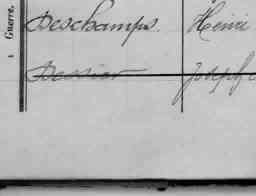 Guerre.
Deschamps. Henri
Dessier Joseph